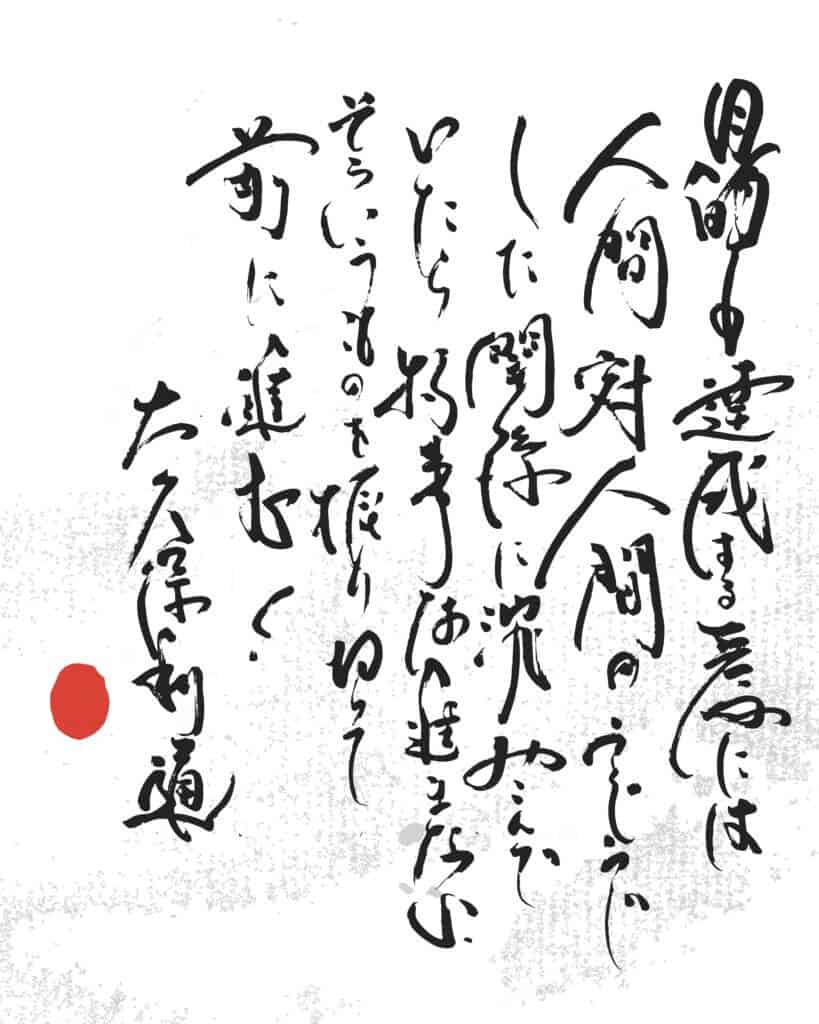 目的を達成する為には
人間対人間のうじうじ
した関係に沈みこんで
いたら物事は進まない
そういうものを振り切って
前に進む！
大久保利通